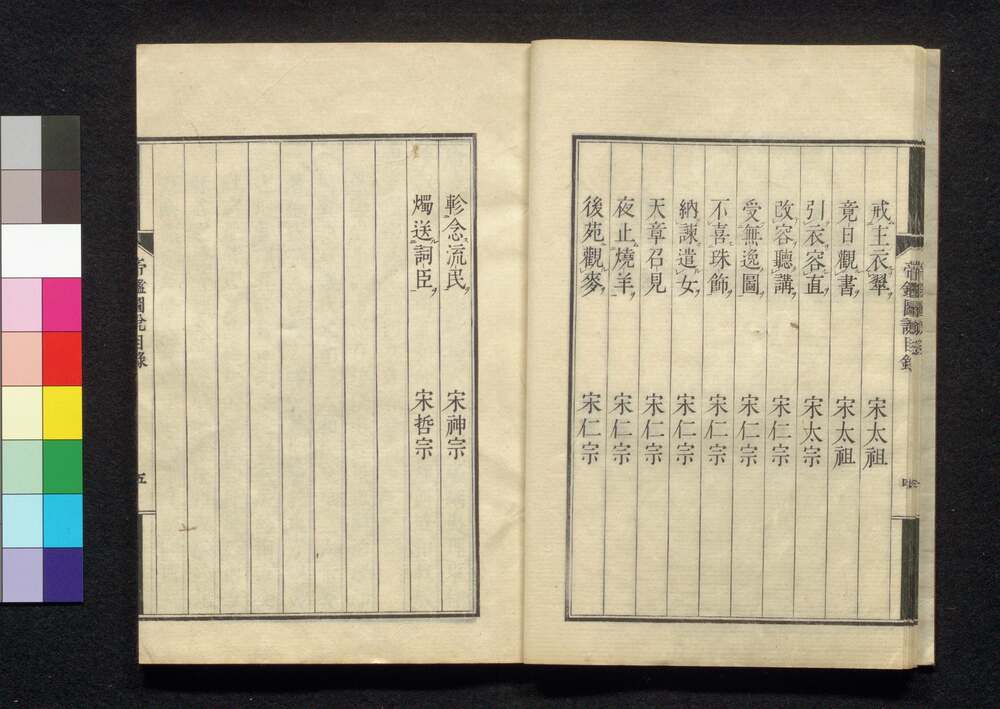 帝鑑圖說目錄
戒主衣翠 宋太祖
竟日觀書 宋太祖
引衣容直 宋太宗
改容聽講 宋仁宗
受無逸圖 宋仁宗
不喜珠飾 宋仁宗
納諫遣女 宋仁宗
天章召見 宋仁宗
夜止燒羊 宋仁宗
後苑觀麥 宋仁宗
軫念流民 宋神宗
燭送詞臣 宋哲宗
帝鑑圖說目錄 五